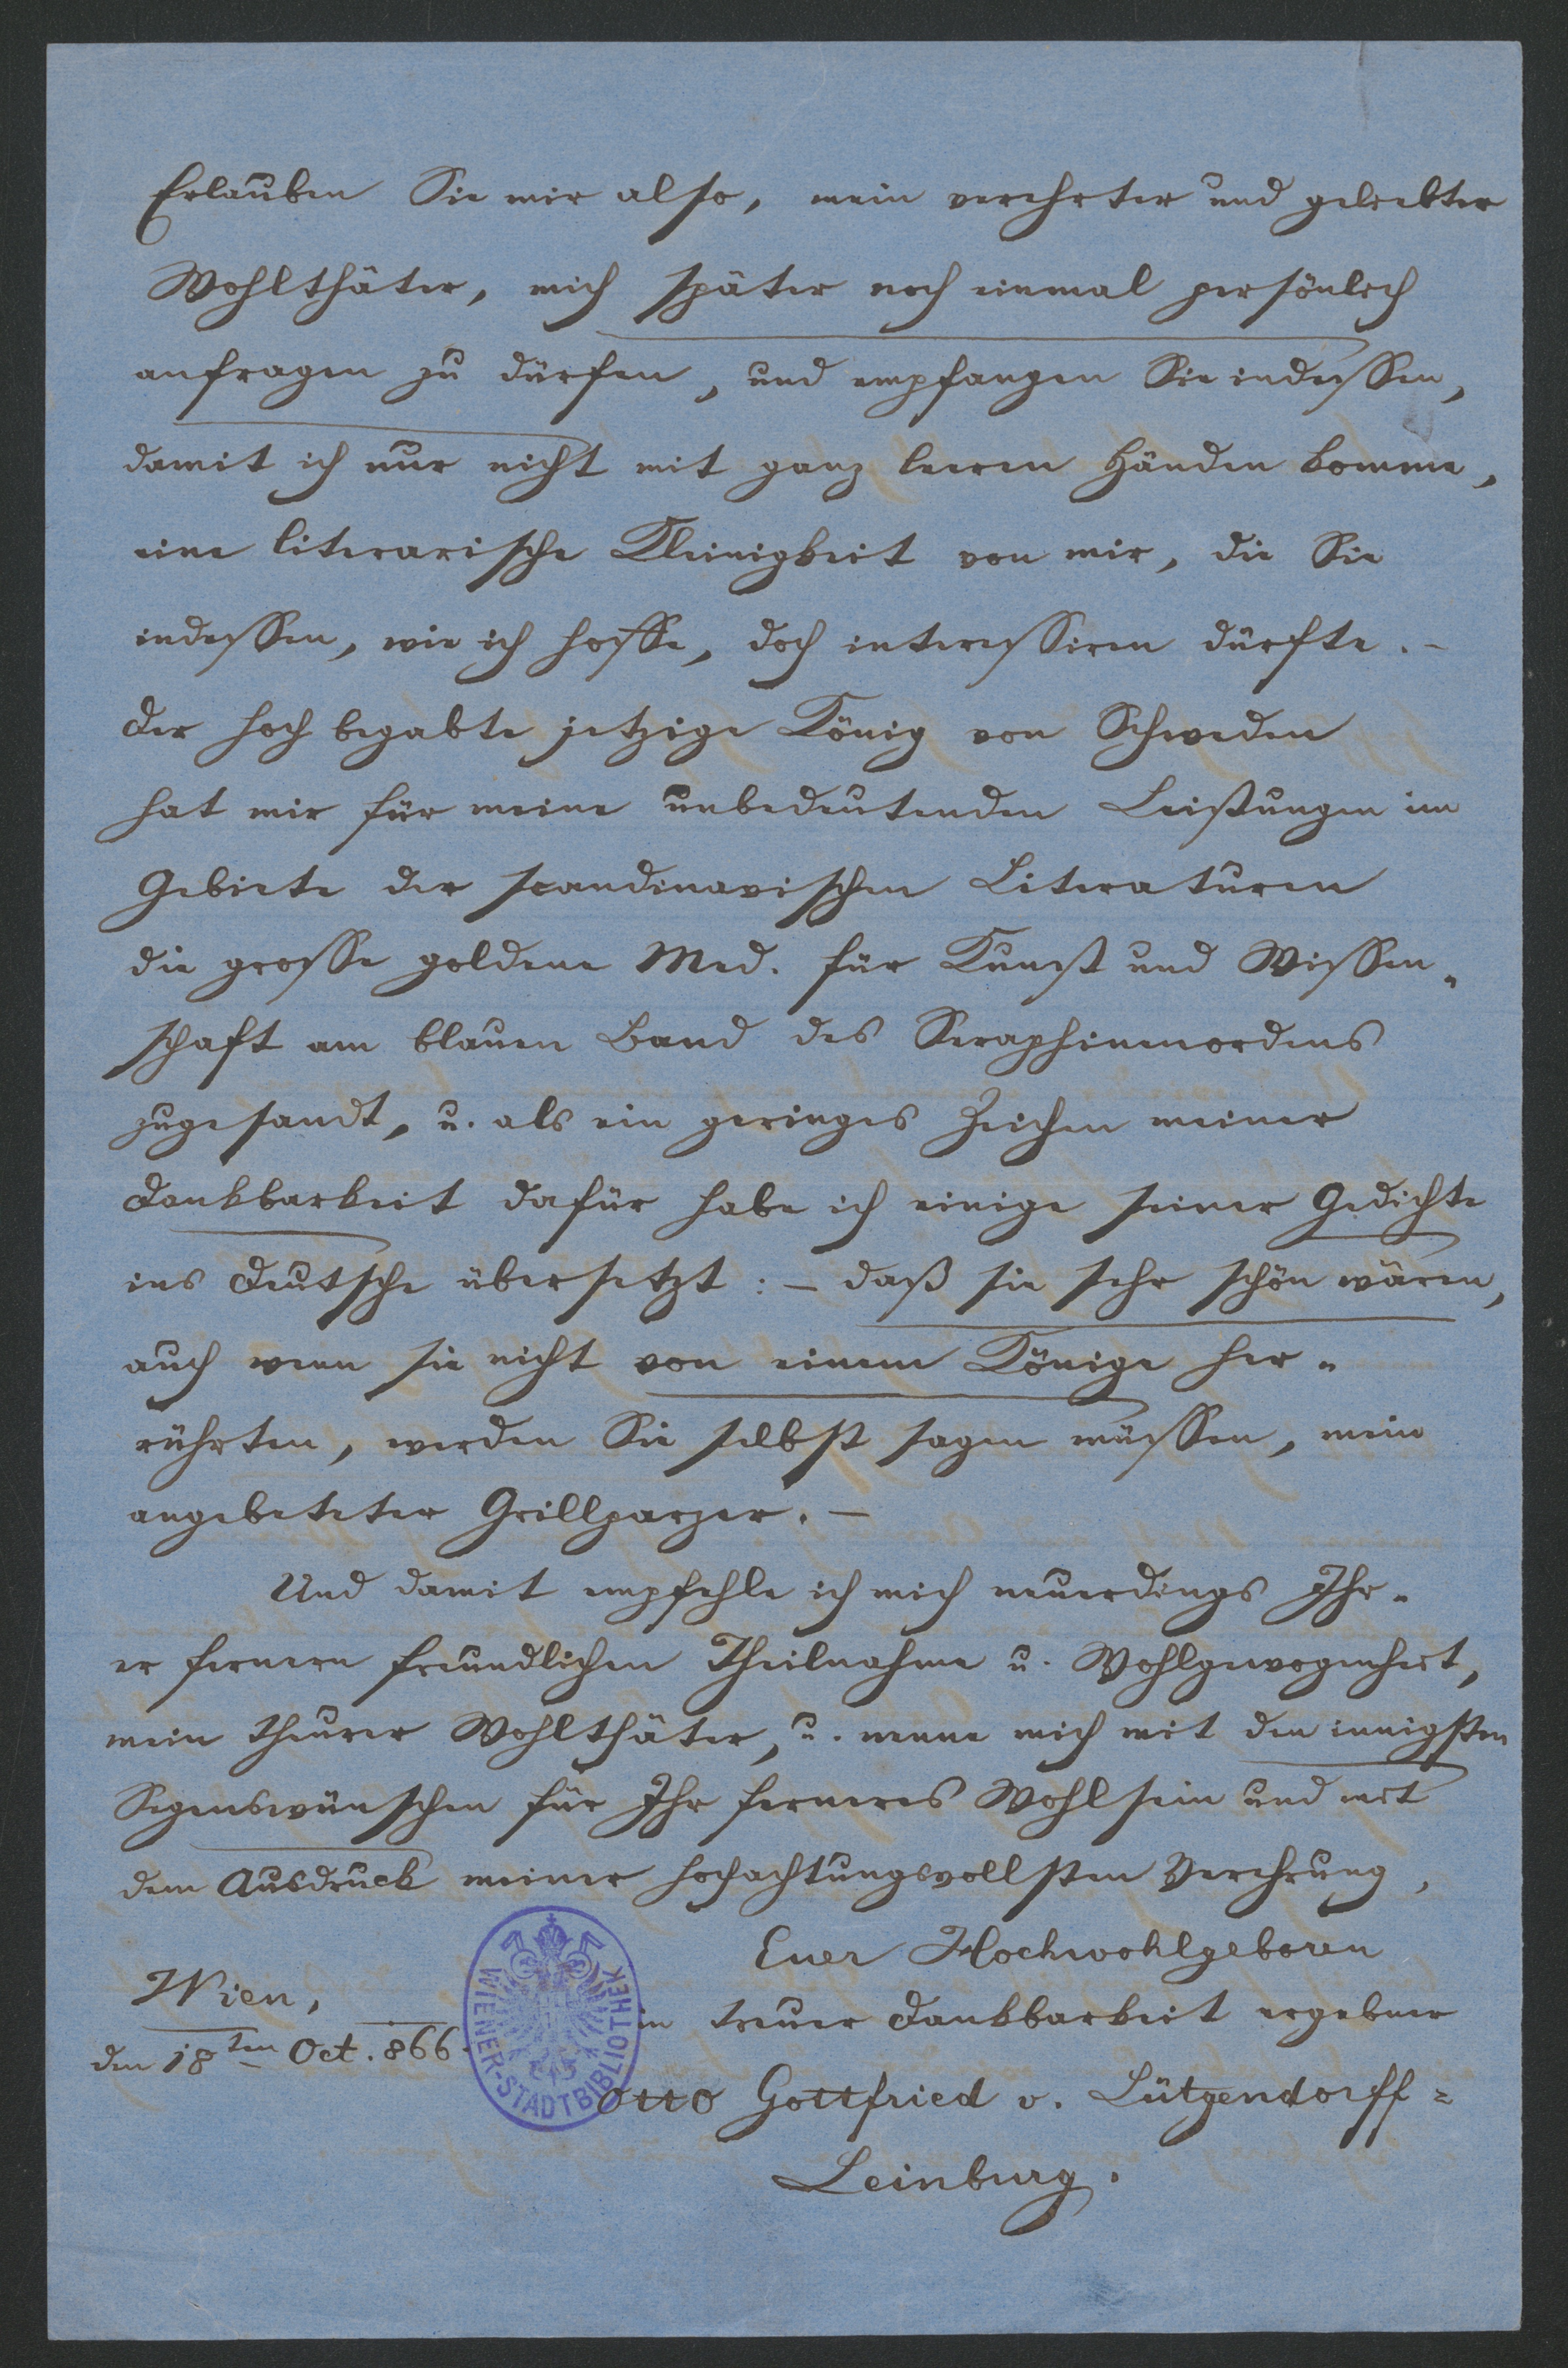 Erlauben Sie mir also, mein verehrter und geliebter
Wohlthäter, mich später noch einmal persönlich
anfragen zu dürfen, und empfangen Sie indessen,
damit ich nur nicht mit ganz leeren Händen komme,
eine literarische Kleinigkeit von mir, die Sie
indessen, wie ich hoffe, doch interessiren dürfte. –
Der hoch begabte jetzige König von Schweden
hat mir für meine unbedeutenden Leistungen im
Gebiete der scandinavischen Literaturen
die grosse goldene Med. für Kunst und Wissen-
schaft am blauen Band des Seraphinenordens
zugesandt, u. als ein geringes Zeichen meiner
Dankbarkeit dafür habe ich einige seiner Gedichte
ins Deutsche übersetzt: – daß sie sehr schön wären,
auch wenn sie nicht von einem Könige her-
rührten, werden Sie selbst sagen müssen, mein
angebeteter Grillparzer. –
Und damit empfehle ich mich neuerdings Ihr-
er fernern freundlichen Theilnahme u. Wohlgewogenheit,
mein theurer Wohlthäter, u. nenne mich mit den innigsten
Segenswünschen für Ihr ferneres Wohlsein und mit
dem Ausdruck meiner hochachtungsvollsten Verehrung,
Euer Hochwohlgeboren
Wien,
in treuer Dankbarkeit ergebner
den 18ten Oct. 866.
Otto Gottfried v. Lütgendorff=
Leinburg.
WIENER-STADTBIBLIOTHEK